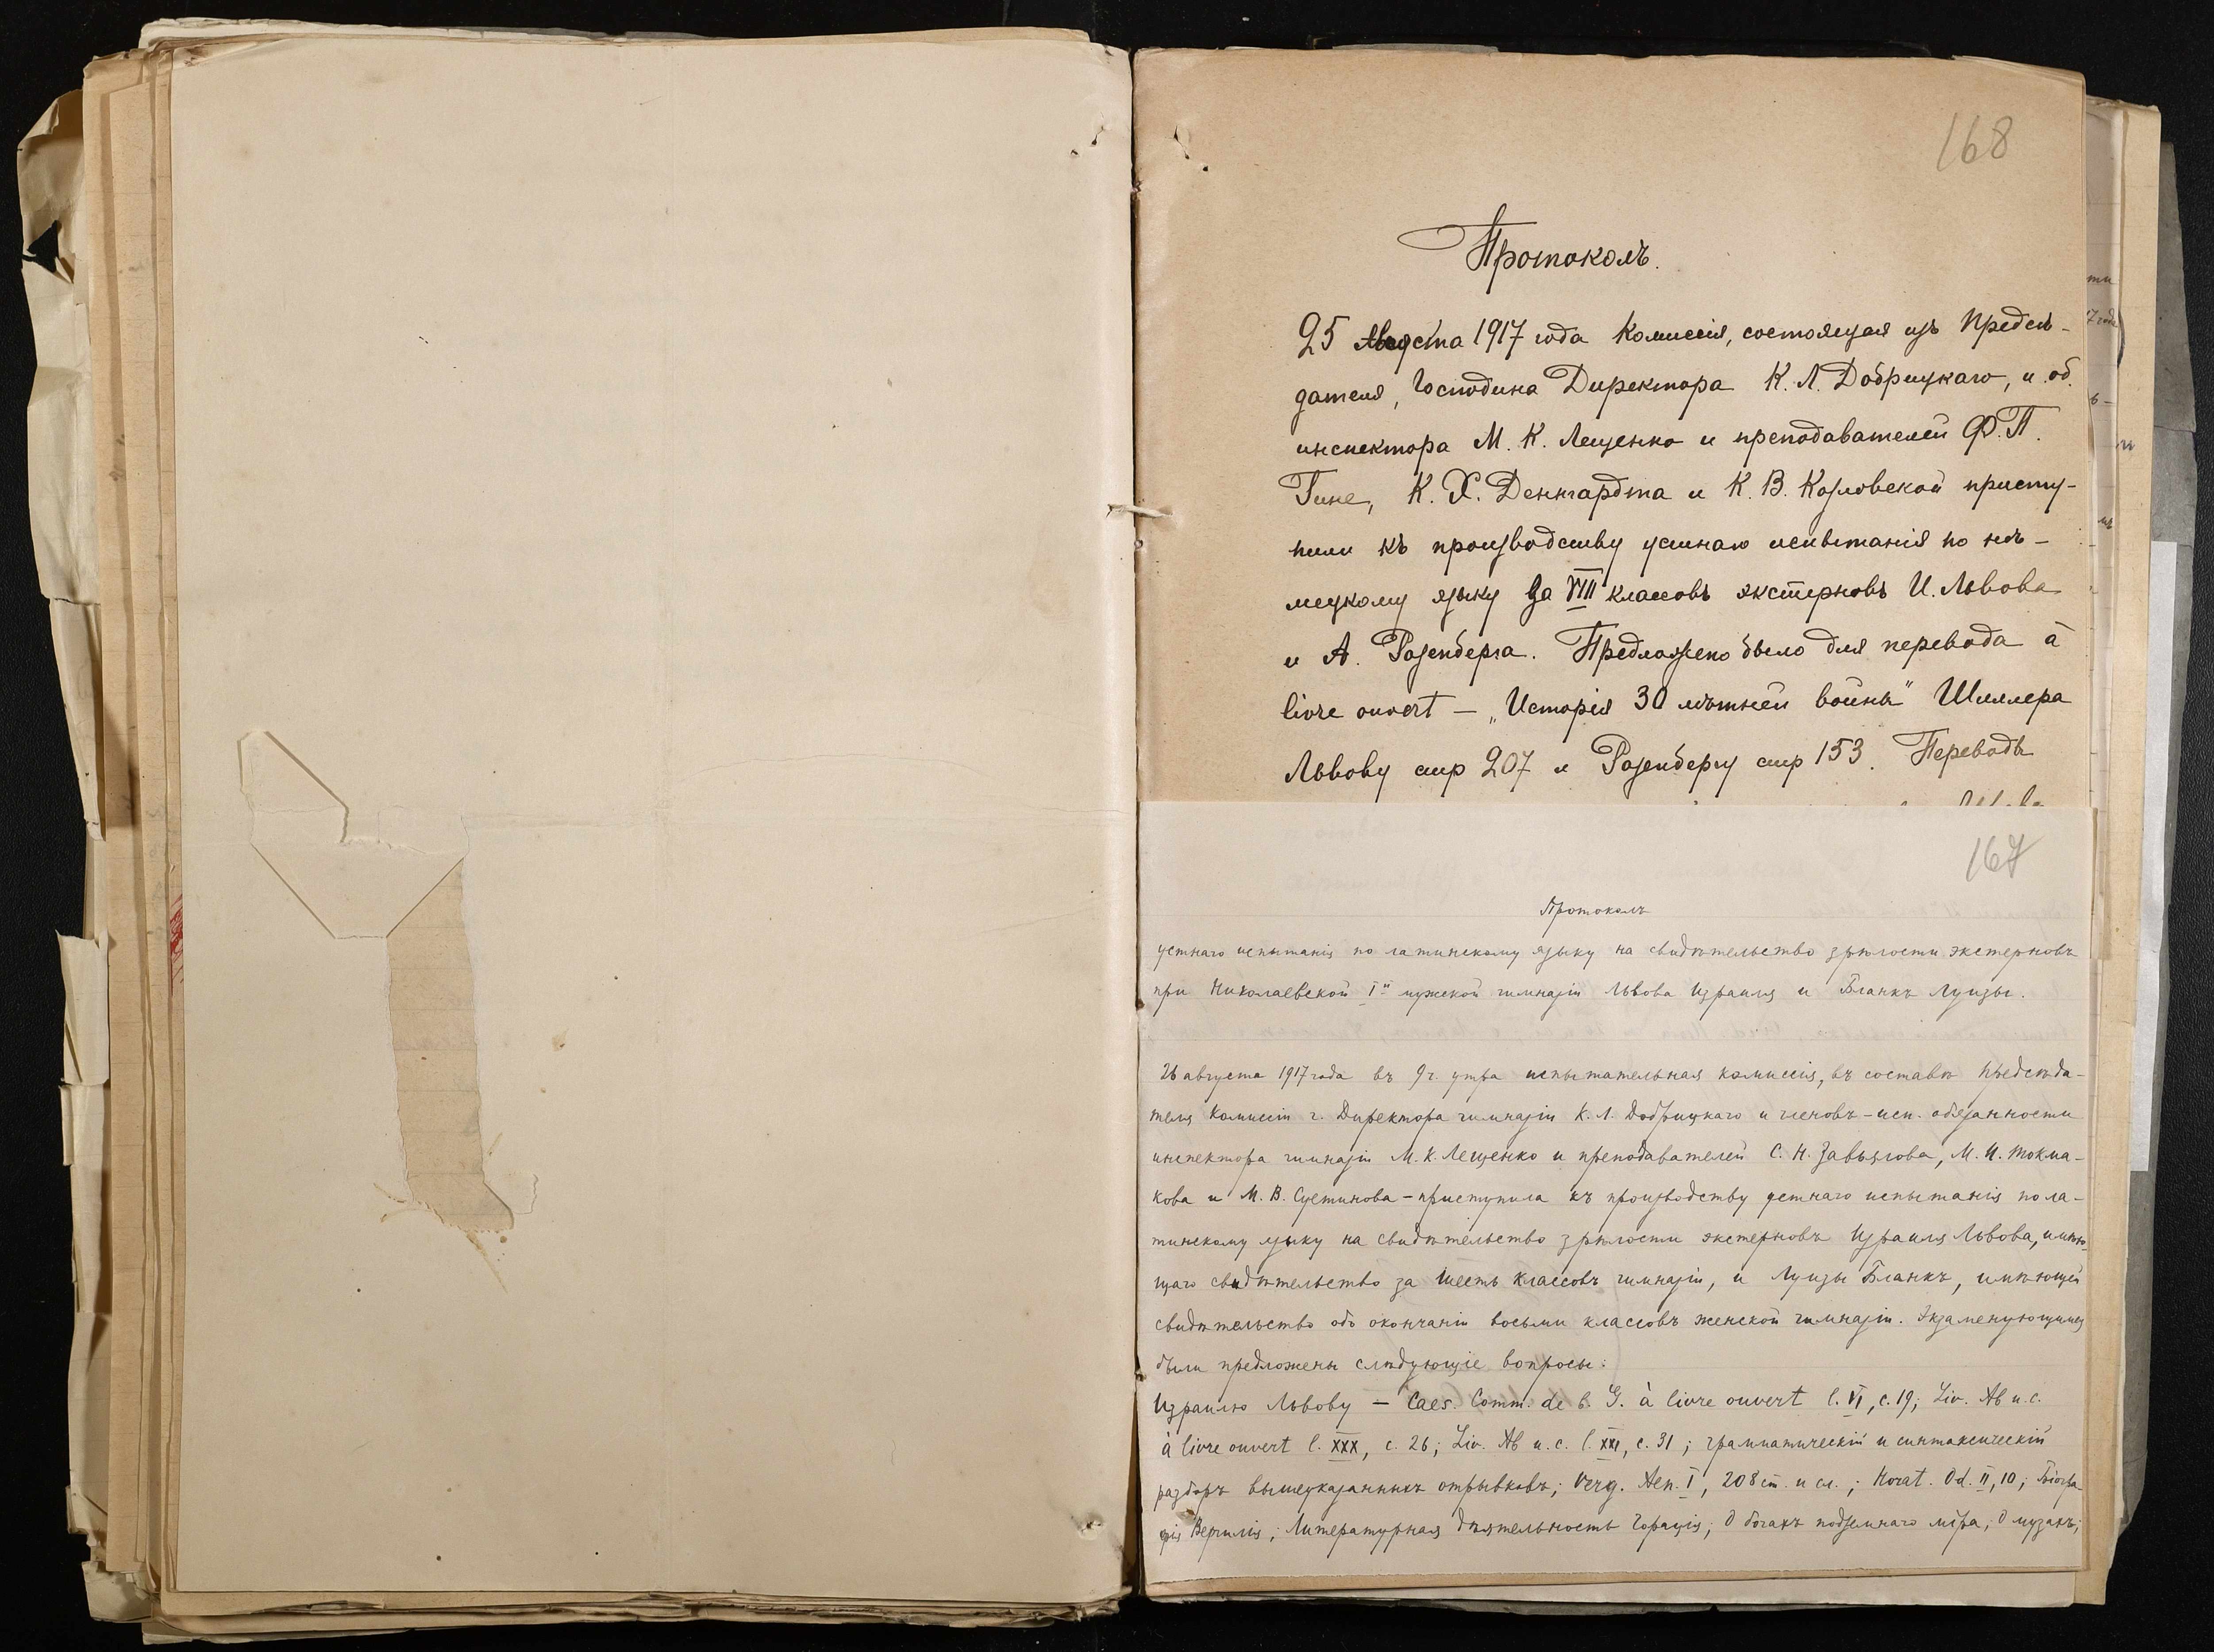 168
Протоколъ.
25 Августа 1917 года Комиссія, состоящая изъ Предсѣ-
дателя, Господина Директора К. Л. Добрицкаго, и. об.
инспектора М. К. Лещенко и преподавателей Ф. П.
Гине, К. Х. Денгардта и К. В. Козловской присту-
пили къ производству устнаго испытанія по нѣ-
мецкому языку за VIII классовъ экстерновъ И. Львова
и А. Розенберга. Предложено было для перевода à
livre ouvert — „Исторія 30 лѣтней войны" Шиллера
Львову стр 207 и Розенбергу стр 153. Переводъ
167
Протоколъ
устнаго испытанія по латинскому языку на свидѣтельство зрѣлости экстерновъ
при Николаевской I-й мужской гимназіи Львова Израиля и Бланкъ Луизы.
26 августа 1917 года въ 9 ч. утра испытательная комиссія, въ составѣ Предсѣда-
теля Комиссіи г. Директора гимназіи К. Л. Добрицкаго и членовъ - исп. обязанности
инспектора гимназіи М. К. Лещенко и преподавателей С. Н. Завьялова, М. И. Токма-
кова и М. В. Сустинова - приступила къ производству устнаго испытанія по ла-
тинскому языку на свидѣтельство зрѣлости экстерновъ Израиля Львова, имѣю-
щаго свидѣтельство за шесть классовъ гимназіи, и Луизы Бланкъ, имѣющей
свидѣтельство объ окончаніи восьми классовъ женской гимназіи. Экзаменующимся
были предложены слѣдующіе вопросы:
Израилю Львову — Caes. Comm. de b. G. à livre ouvert l. VI, c. 19; Liv. Ab u. c.
à livre ouvert l. XXX, c. 26; Liv. Ab u. c. l. XXI, c. 31; грамматическій и синтаксическій
разборъ вышеуказанныхъ отрывковъ; Verg. Aen. I, 208 ст. и сл.; Horat. Od. II, 10; Біогра-
фія Вергилія; Литературная дѣятельность Горація; О богахъ подземнаго міра; О музахъ;